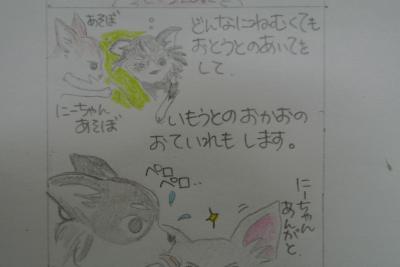 どんなにねむくても
おとうとのあいてを
をして.
あそぼ
にーちゃん
あそぼ
いもうとのおかおの
おていれもします。
ペロ
ペロ..
にーちゃん
あんがと.